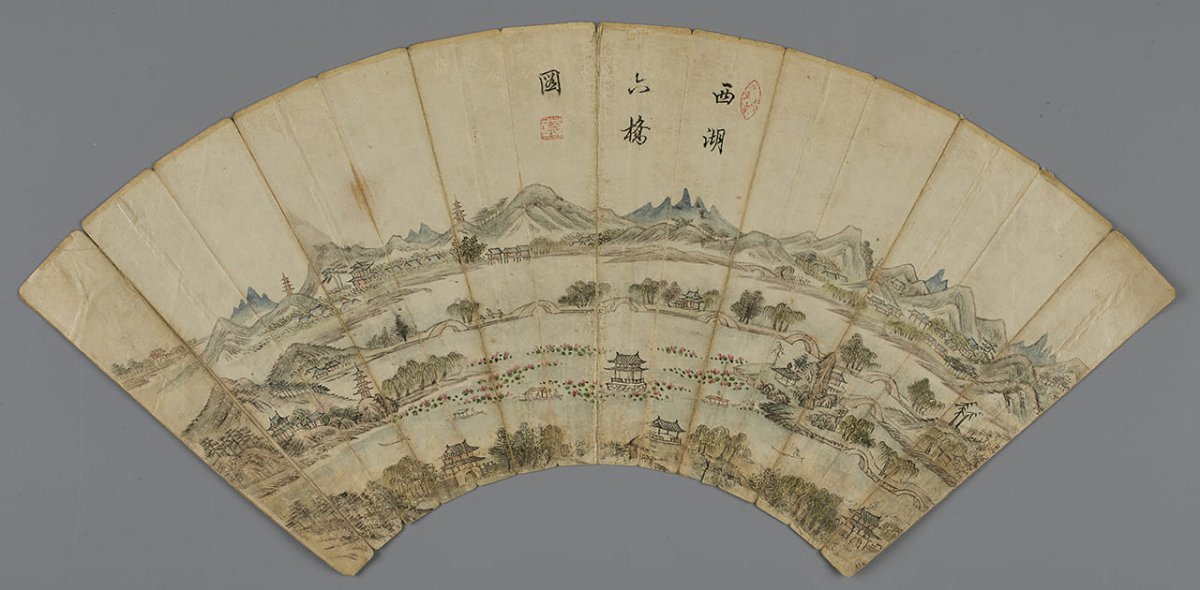 西湖
六橋
圖